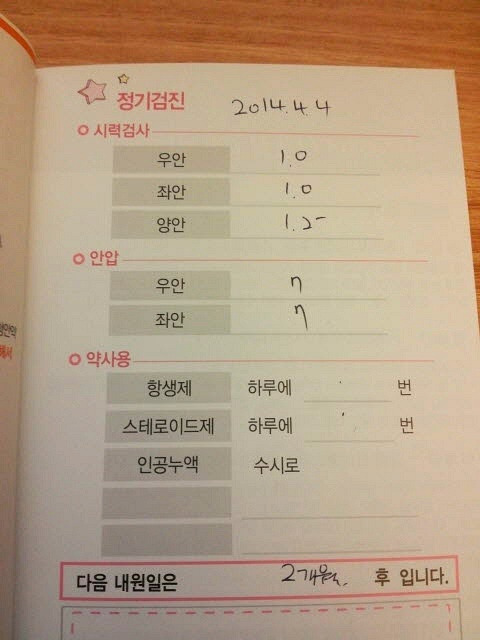 정기검진 2014.4.4
시력검사
우안 1.0
좌안 1.0
양안 1.2
안압
우안 η
좌안 η
약사용
항생제 하루에 번
스테로이드제 하루에 번
인공누액 수시로
다음 내원일은 2개월. 후 입니다.